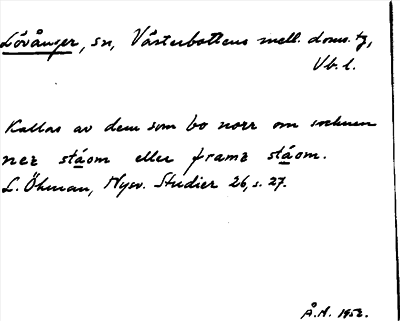 Lövånger, sn, Västerbottens mell. doms. tg,
Vb. l.
Kallas av dem som bo norr om socknen
ner ståom eller framr ståom.
L. Öhman, Nysv. Studier 26, s. 27.
Å.N. 1952.